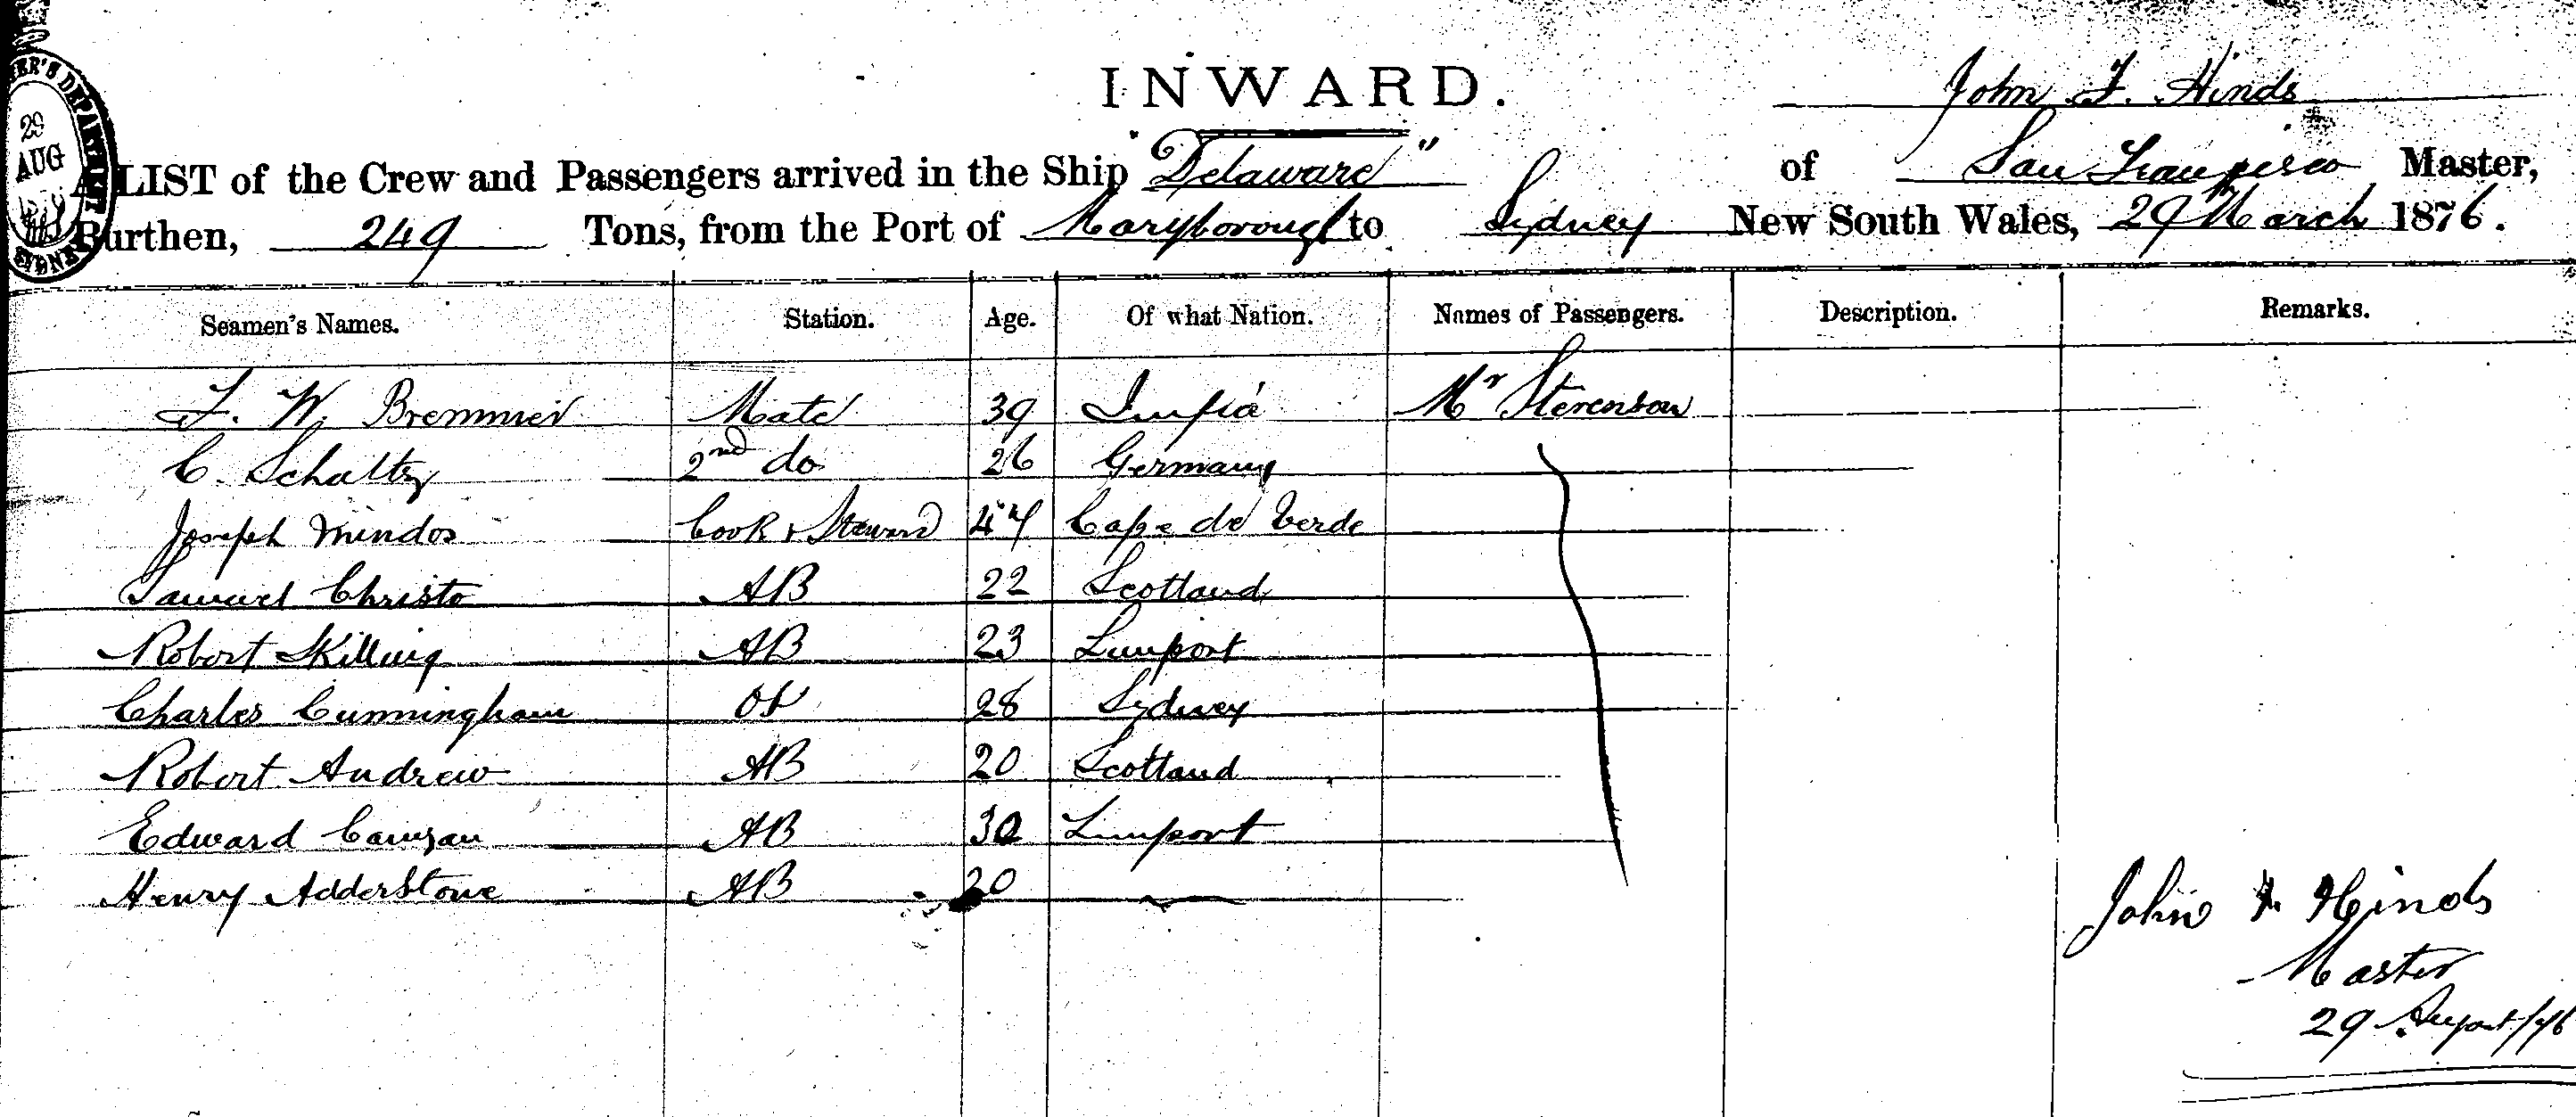 INWARD.
John F. Hinds
A LIST of the Crew and Passengers arrived in the Ship "Delaware" of San Francisco Master,
Burthen, 249 Tons, from the Port of Maryborough to Sydney New South Wales, 29th March 1876.
29
AUG
Seamen's Names. Station. Age. Of what Nation. Names of Passengers. Description. Remarks.
F. W. Bremmer Mate 39 Mr Stevenson
C. Schaltz 2nd do 26 Germany
Joseph Mindos Cook & Steward 44 Cape de Verde
Samuel Christo AB 22 Scotland
Robert Skilling AB 23
Charles Cunningham OS 28 Sydney
Robert Andrew AB 20 Scotland
Edward AB 30
Henry Adderstone AB 20
John F. Hinds
Master
29 August /76